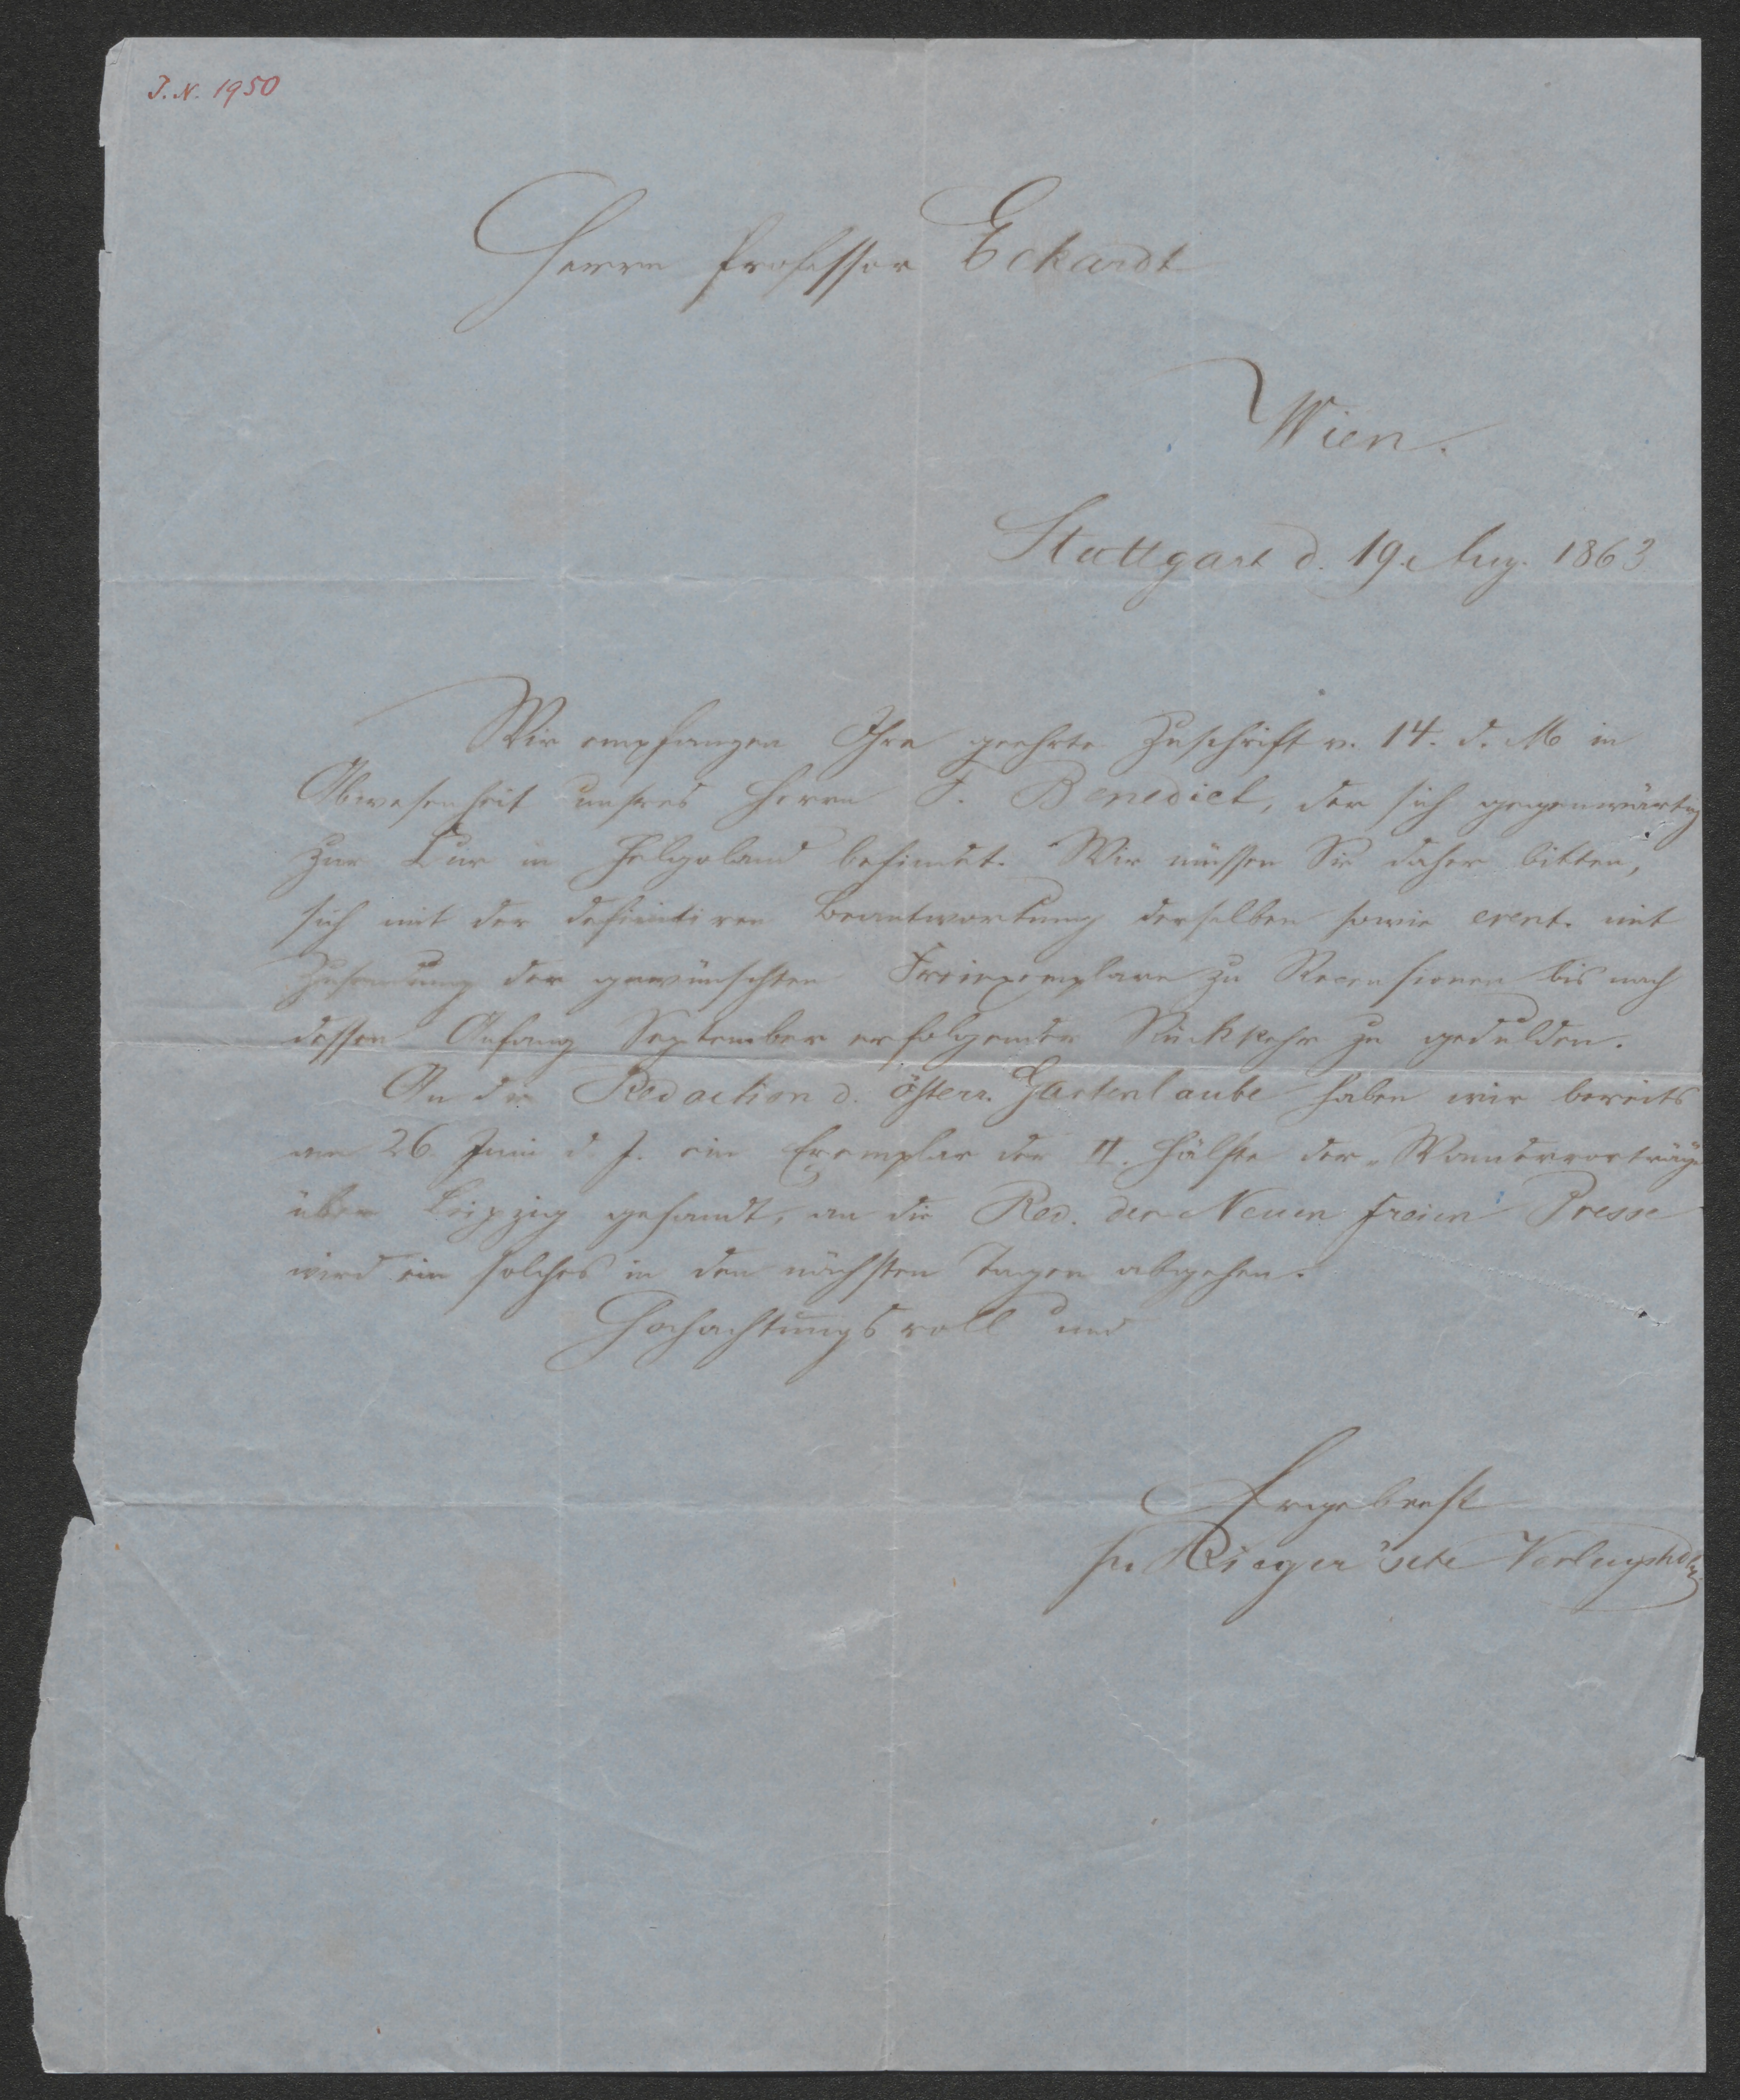 J. N. 1950
Herrn Professor Eckardt
Wien.
Stuttgart d. 19. Aug. 1863
Wir empfangen Ihre geehrte Zuschrift v. 14. d. M in
Abwesenheit unsres Herrn F. Benedict, der sich gegenwärtig
zur Cur in Helgoland befindet. Wir müssen Sie daher bitten,
sich mit der definitiven Beantwortung derselben sowie event. mit
Zusendung der gewünschten Freiexemplare zu Recensionen bis nach
dessen Anfang September erfolgender Rückkehr zu gedulden.
An die Redaction d. österr. Gartenlaube haben wir bereits
am 26. Juni d. J. ein Exemplar der II. Hälfte der „Wandervorträge
über Leipzig gesandt, an die Red. der Neuen freien Presse
wird ein solches in den nächsten Tagen abgehen.
Hochachtungsvoll und
Ergebenst
Rieger'sche Verlagshdlg